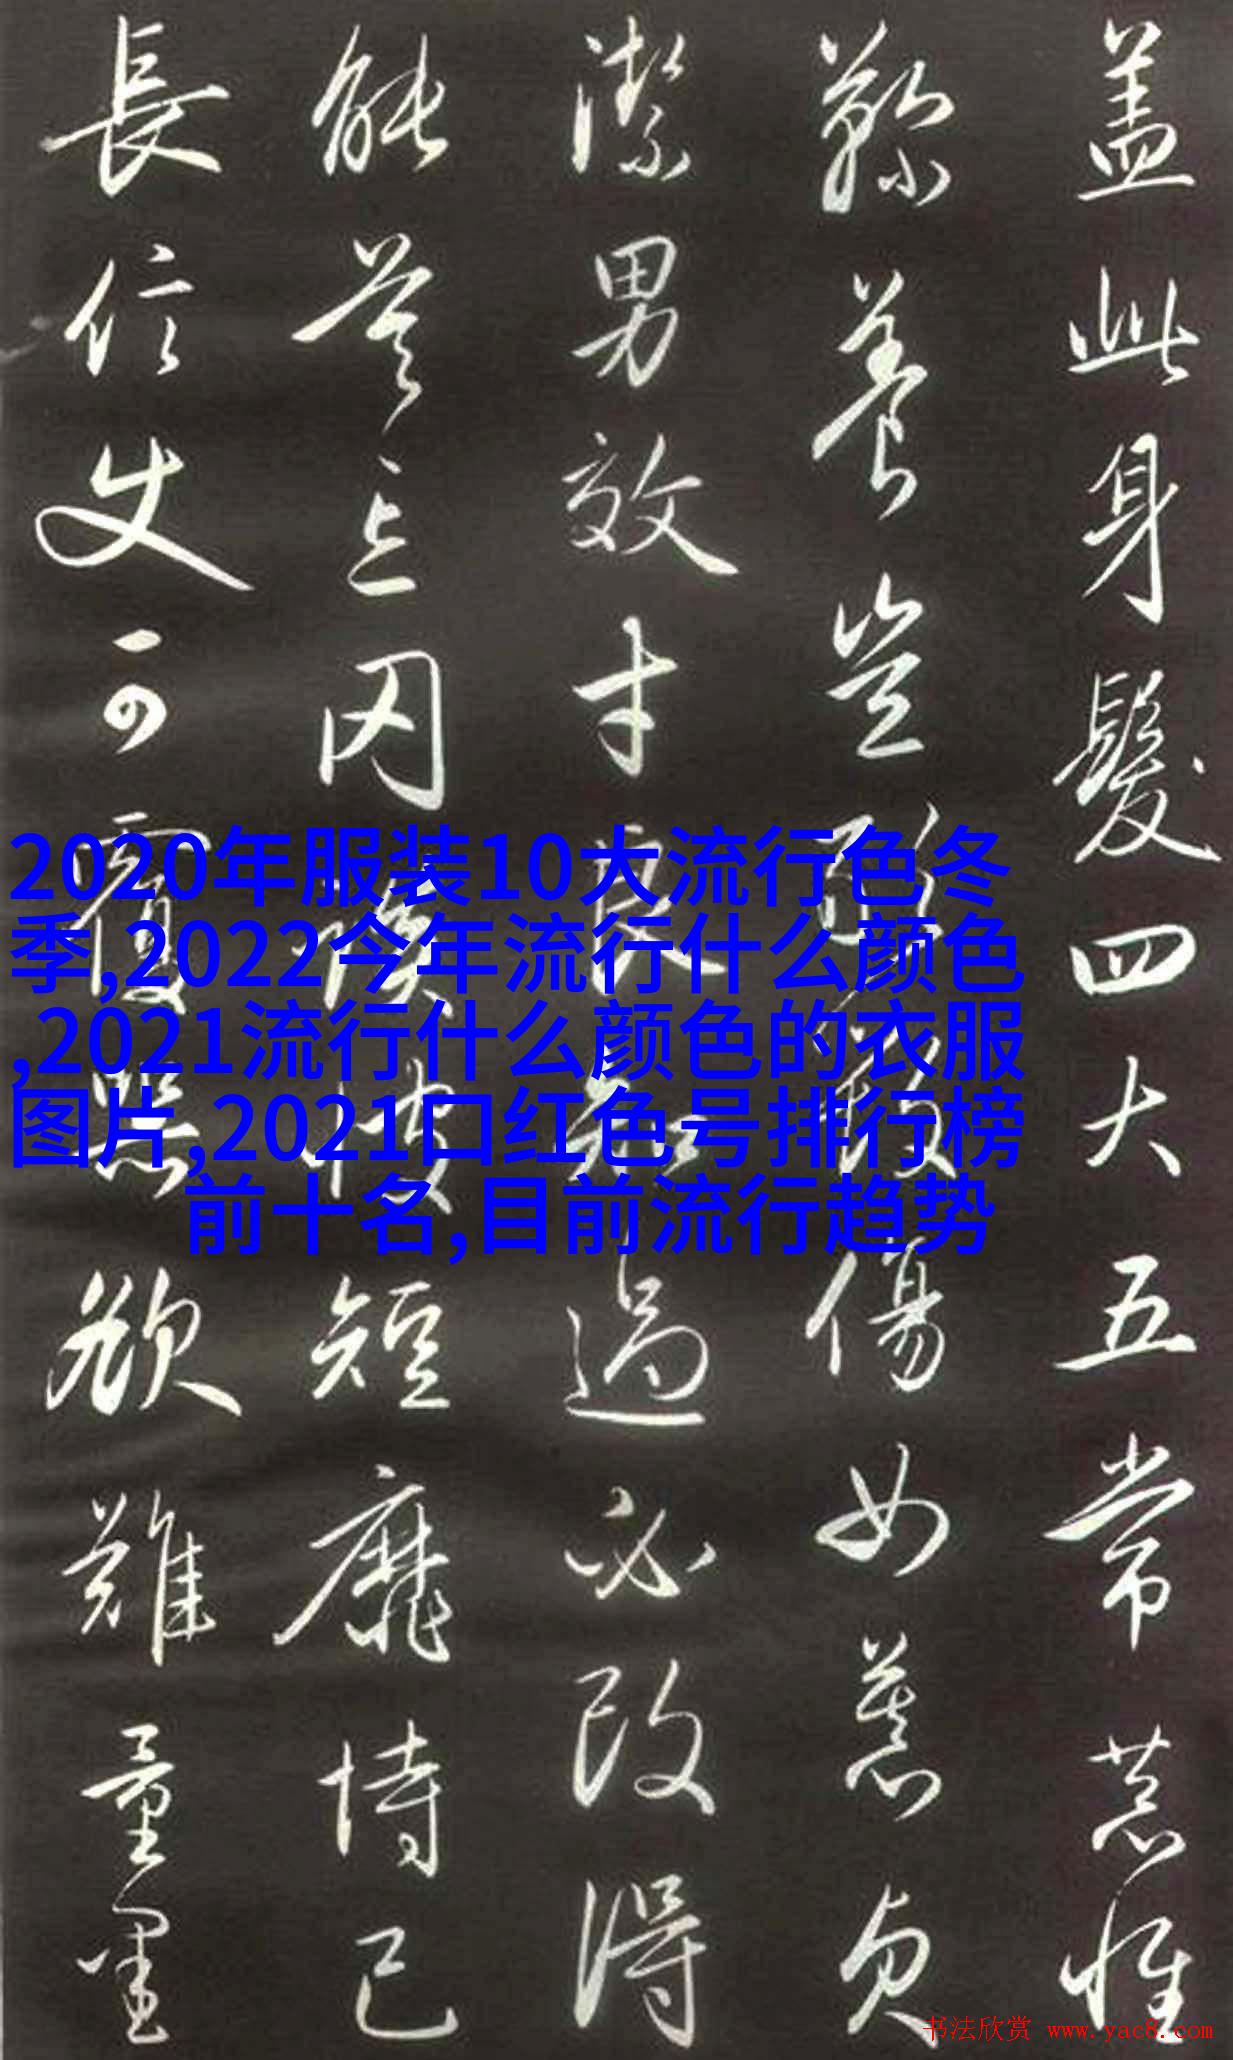 盖此身髮四大五常恭惟
鞠養豈敢毀傷女慕貞
潔男效才良知過必改得
能莫忘罔談彼短靡恃己
長信使可覆器欲難量墨
2020年服装10大流行色冬
季,2022今年流行什么颜色
,2021流行什么颜色的衣服
图片,2021口红色号排行榜
前十名,目前流行趋势
书法欣赏 www.yac8.com